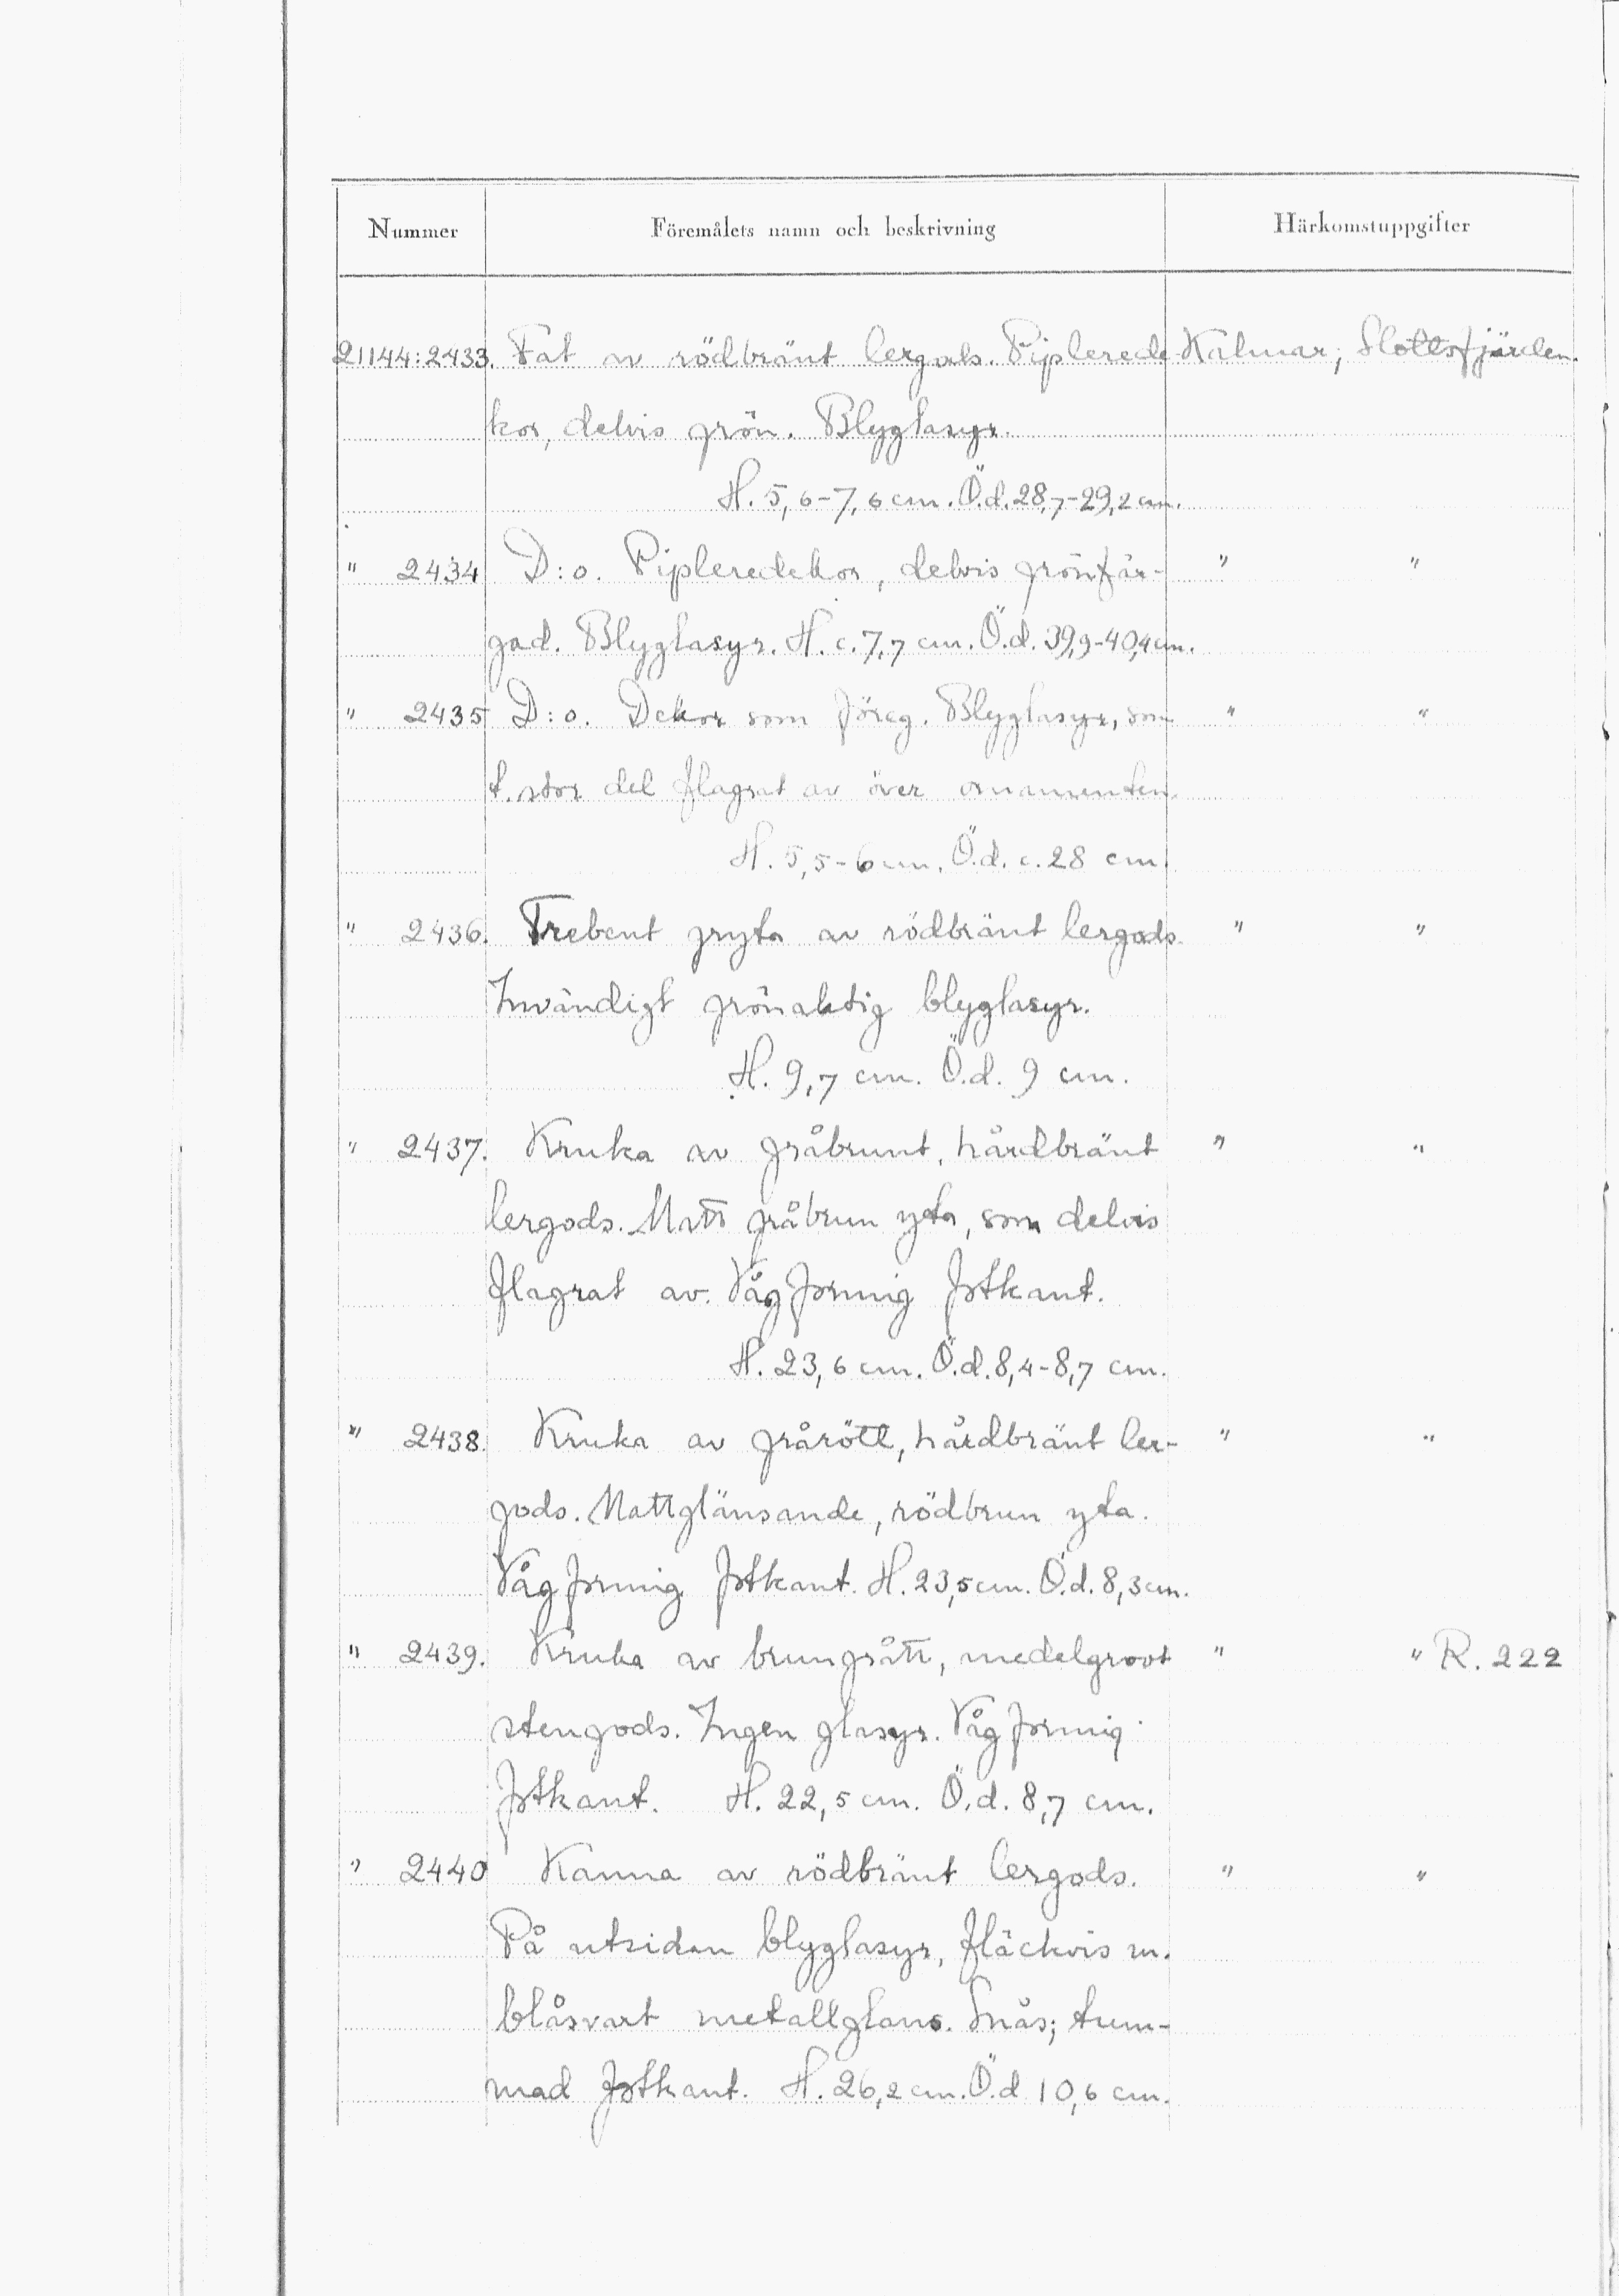 Nummer Föremålets namn och beskrivning Härkomstuppgifter
21144:2433. Fat av rödbränt lergods. Piplerede Kalmar; Slottsfjärden.
kor, delvis grön. Blyglasyr.
H. 5,6-7,6 cm. Ö.d. 28,7-29,2 cm.
" 2434 D:o. Pipleredekor, delvis grönfär- " "
gad. Blyglasyr. H. c. 7,7 cm. Ö.d. 39,9-40,4 cm.
" 2435 D:o. Dekor som föreg. Blyglasyr, som " "
t. stor del flagrat av över ornamenten.
H. 5,5-6 cm. Ö.d. c. 28 cm.
" 2436. Trebent gryta av rödbränt lergods. " "
Invändigt grönaktig blyglasyr.
H. 9,7 cm. Ö.d. 9 cm.
" 2437. Kruka av gråbrunt, hårdbränt " "
lergods. Matt gråbrun yta, som delvis
flagrat av. Vågformig fotkant.
H. 23,6 cm. Ö.d. 8,4-8,7 cm.
" 2438. Kruka av grårött, hårdbränt ler- " "
gods. Mattglänsande, rödbrun yta.
Vågformig fotkant. H. 23,5 cm. Ö.d. 8,3 cm.
" 2439. Kruka av brungrått, medelgrovt " " R. 222
stengods. Ingen glasyr. Vågformig
fotkant. H. 22,5 cm. Ö.d. 8,7 cm.
" 2440 Kanna av rödbränt lergods. " "
På utsidan blyglasyr, fläckvis m.
blåsvart metallglans. Snås; tum-
mad fotkant. H. 26,2 cm. Ö.d 10,6 cm.